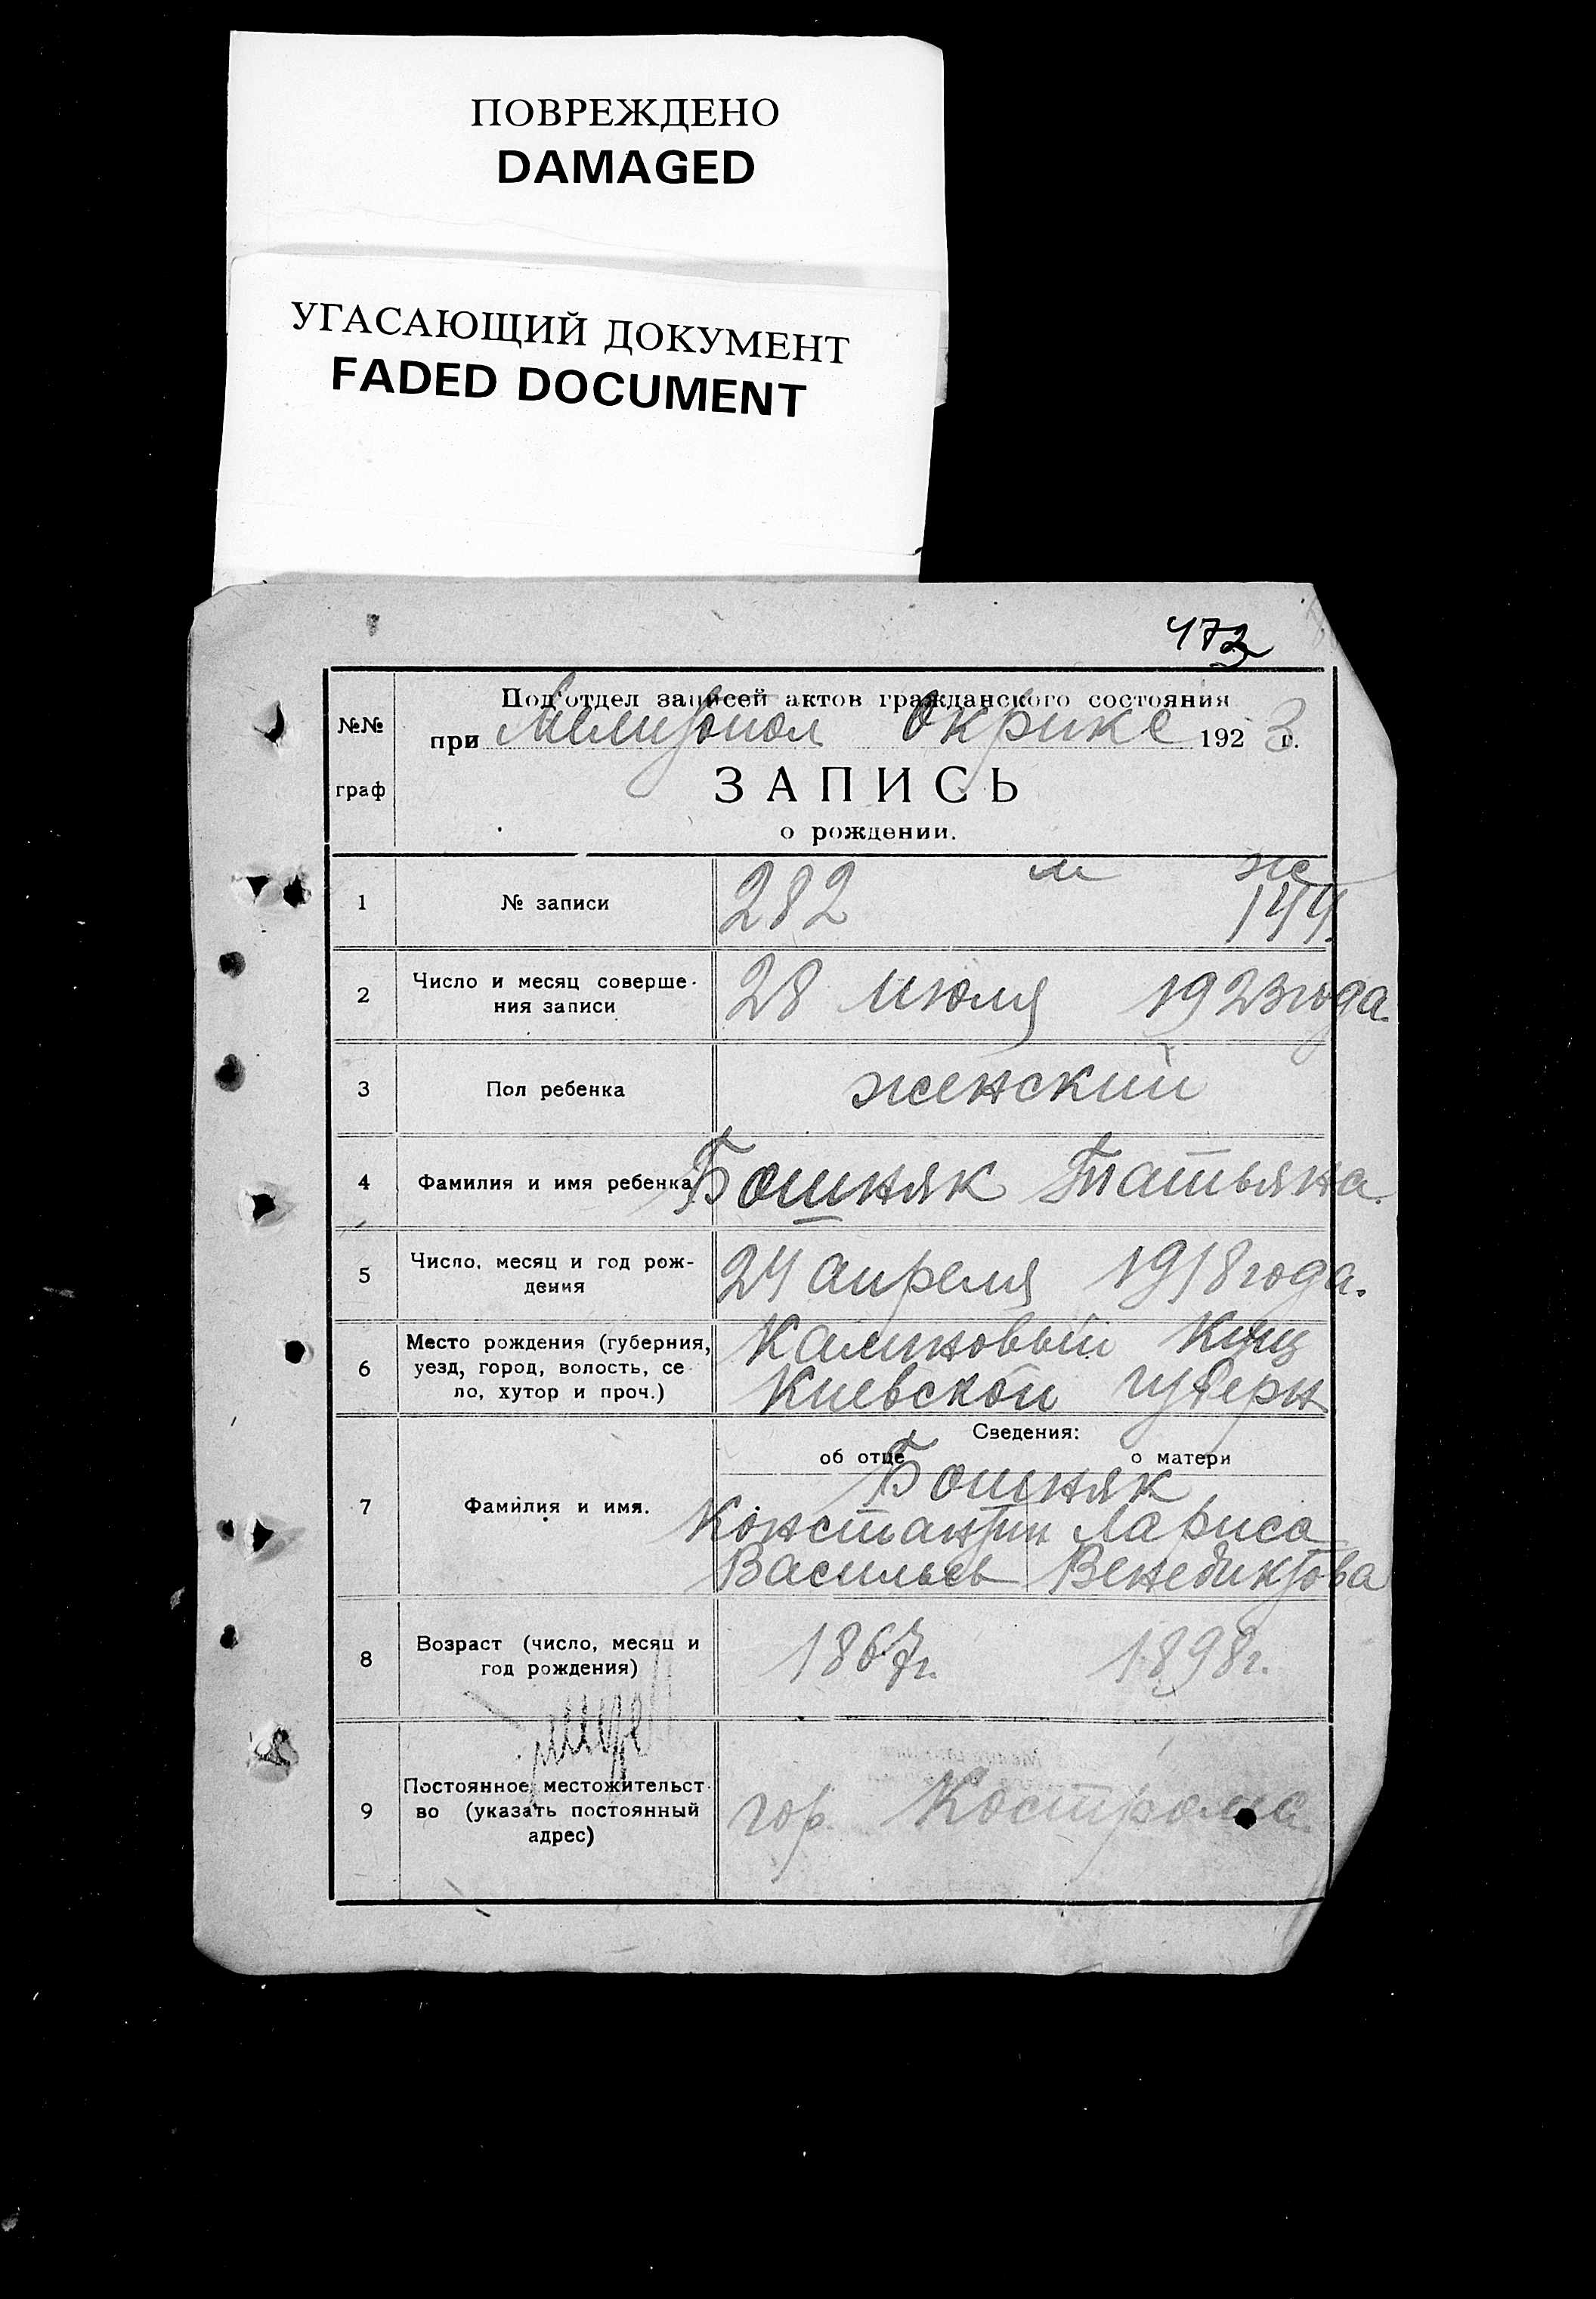 ПОВРЕЖДЕНО
DAMAGED
УГАСАЮЩИЙ ДОКУМЕНТ
FADED DOCUMENT
473
№№ граф
Под‘отдел записей актов гражданского состояния
при Мелитопол Окрике 1923 г.
ЗАПИСЬ
о рождении.
м же
1 № записи 282 144.
2 Число и месяц соверше-
ния записи
28 июля 1923 года.
3 Пол ребенка женский
4 Фамилия и имя ребенка Бошняк Татьяна.
5 Число, месяц и год рож-
дения
24 апреля 1918 года.
6 Место рождения (губерния,
уезд, город, волость, се
ло, хутор и проч.)
Калиновый
Киевской губерн
Сведения:
об отце о матери
7 Фамилия и имя.
Бошняк
Константин Лариса
Васильев Венедиктова
8 Возраст (число, месяц и
год рождения)
1867г. 1898г.
9 Постоянное местожительст-
во (указать постоянный
адрес)
гор. Кострома.